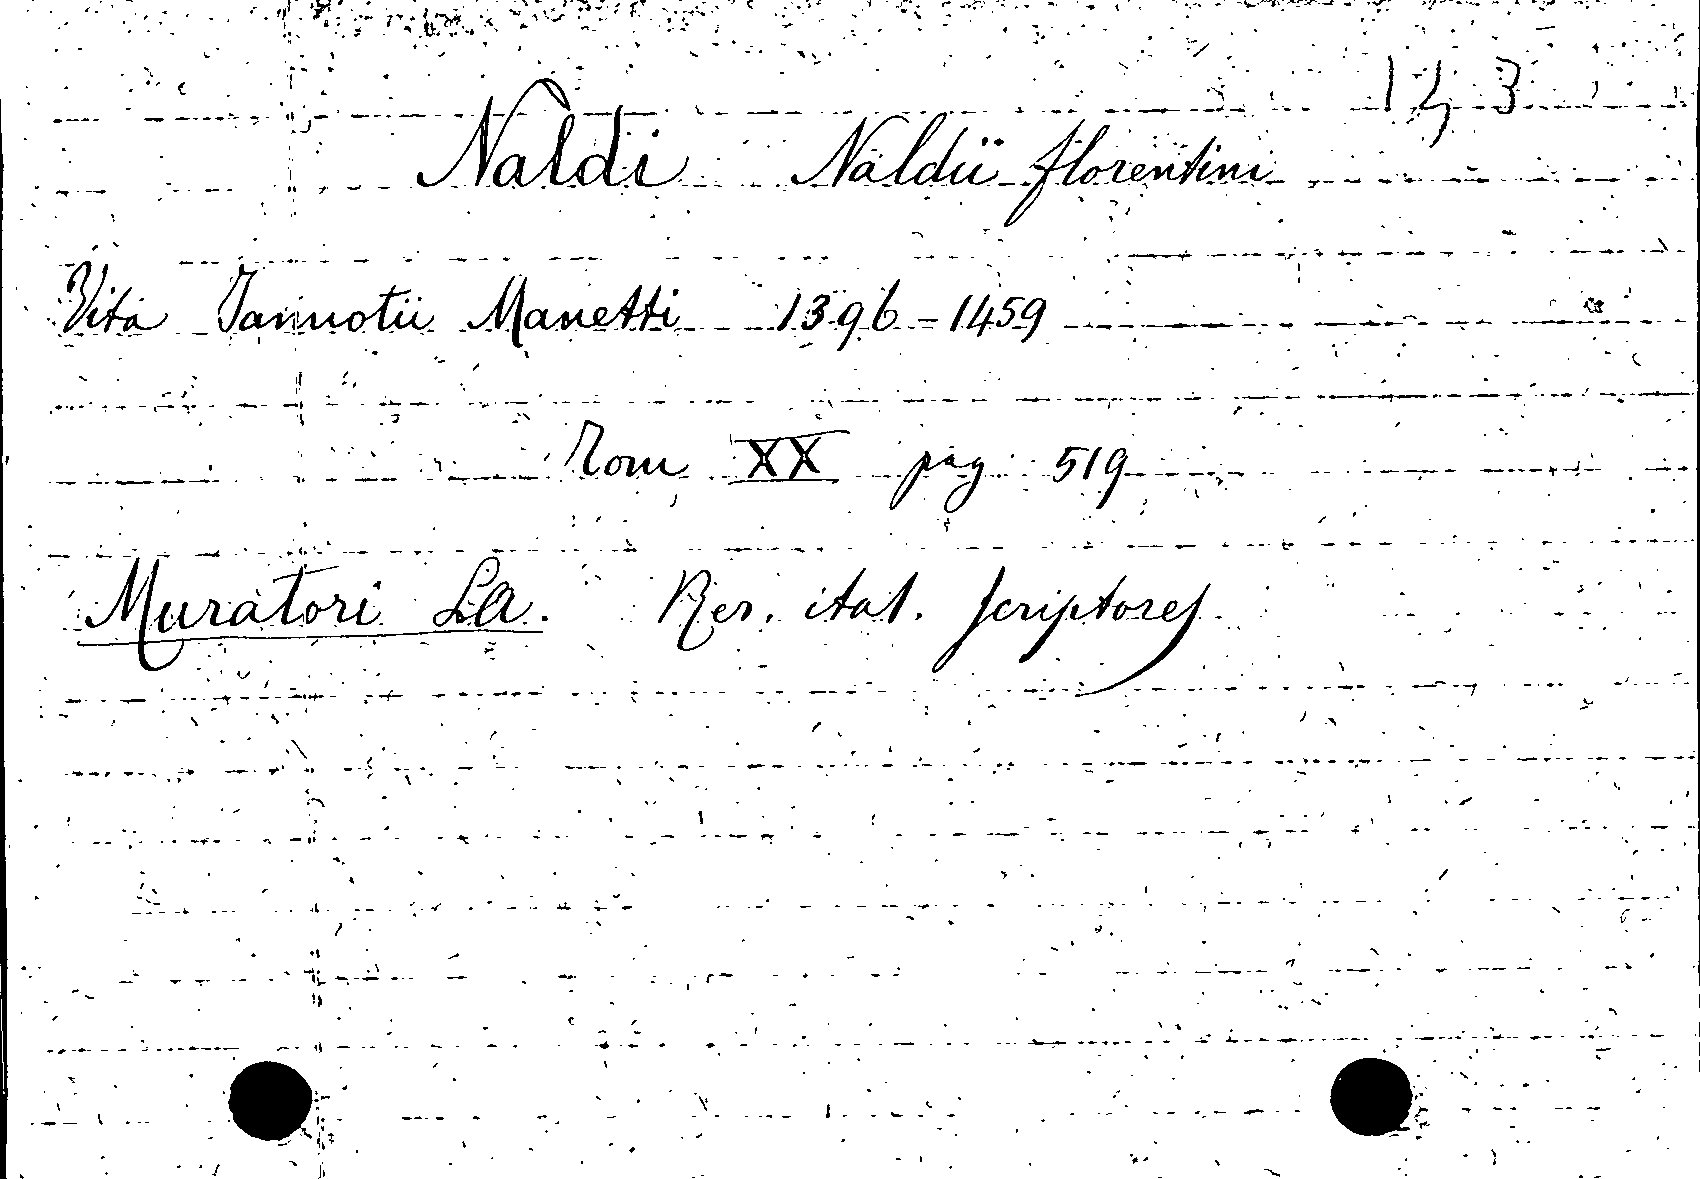 143
Naldi Naldii florentini
Vita Jannotii Manetti 1396-1459
Tom XX pag 519
Muratori La. Rer. ital. scriptores.